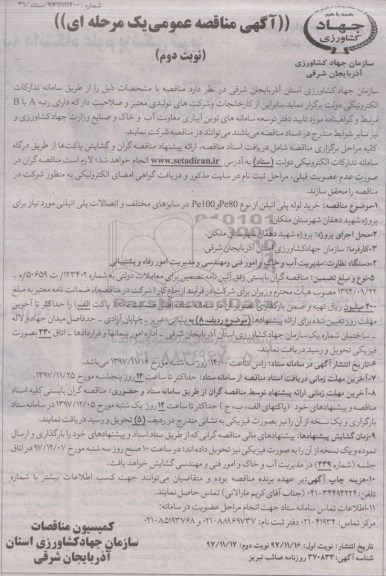 شماره: ۹۷۱۱۱۱۲۰۰/ستاد/۳۱
جهاد
کشاورزی
سازمان جهاد کشاورزی
آذربایجان شرقی
((آگهی مناقصه عمومی یک مرحله ای))
(نوبت دوم)
سازمان جهاد کشاورزی استان آذربایجان شرقی در نظر دارد مناقصه با مشخصات ذیل را از طریق سامانه تدارکات
الکترونیکی دولت برگزار نماید. بنابراین از کارخانجات و شرکت های تولیدی معتبر و صلاحیت دار که دارای رتبه A یا B
مرتبط و گواهینامه مورد تایید دفتر توسعه سامانه های نوین آبیاری معاونت آب و خاک و صنایع وزارت جهاد کشاورزی و
نیز سایر شرایط مندرج در اسناد مناقصه باشند می توانند در مناقصه شرکت نمایند.
کلیه مراحل برگزاری مناقصه شامل دریافت اسناد مناقصه، ارائه پیشنهاد مناقصه گران و گشایش پاکت ها از طریق درگاه
سامانه تدارکات الکترونیکی دولت (ستاد) به آدرس www.setadiran.ir انجام خواهد شد؛ لازم است مناقصه گران در
صورت عدم عضویت قبلی، مراحل ثبت نام در سایت مذکور و دریافت گواهی امضای الکترونیکی به منظور شرکت در
مناقصه را محقق سازند.
۱-موضوع مناقصه: خرید لوله پلی اتیلن از نوع Pe80 و Pe100 در سایزهای مختلف و اتصالات پلی اتیلنی مورد نیاز برای
پروژه شهید دهقان شهرستان ملکان.
۲-محل اجرای پروژه: پروژه شهید دهقان شهرستان ملکان.
۳-کارفرما: سازمان جهاد کشاورزی استان آذربایجان شرقی.
۴-دستگاه نظارت: مدیریت آب و خاک و امور فنی و مهندسی و مدیریت امور رفاه و پشتیبانی
۵-نوع و مبلغ تضمین: مناقصه گران بایستی وفق آئین نامه تضمین برای معاملات دولتی به شماره ۱۲۳۴۰۲/ت۵۰۶۵۹ه
۱۳۹۴/۰۹/۲۲ مصوب هیأت محترم وزیران برای شرکت در فرایند ارجاع کار (شرکت در مناقصه)، ضمانت نامه معتبر به مبلغ
مهلت زمان تعیین شده برای ارائه پیشنهادها (موضوع ردیف ۸) به نشانی تبریز - خیابان آزادی - حدفاصل میدان جهاد و لاله
- ساختمان شماره یک سازمان جهاد کشاورزی استان آذربایجان شرقی - اداره امور پیمانها و قراردادها - اتاق ۲۳۰ بصورت
فیزیکی تحویل و رسید دریافت نمایند.
۶-تاریخ انتشار آگهی در سامانه ستاد: راس ساعت ۱۴:۰۰ روز سه شنبه مورخ ۱۳۹۷/۱۱/۱۶ می باشد.
۷-آخرین مهلت زمانی دریافت اسناد مناقصه از سامانه ستاد: حداکثر تا ساعت ۱۴ روز پنجشنبه مورخ ۱۳۹۷/۱۱/۲۵
۸-آخرین مهلت زمانی ارائه پیشنهاد توسط مناقصه گران از طریق سامانه ستاد و حضوری: مناقصه گران بایستی کلیه اسناد
مناقصه و پیشنهادهای خود (پاکتهای الف، ب، ج) حداکثر تا ساعت ۱۴ روز یک شنبه مورخ ۱۳۹۷/۱۲/۰۵ در سامانه ستاد
بارگزاری و یک نسخه از آن را نیز بصورت فیزیکی به نشانی مندرج در ردیف (۵) تحویل و رسید دریافت نمایند.
۹-زمان گشایش پیشنهادها: پیشنهادهای مالی مناقصه گرانی که از طریق ستاد اسناد و پیشنهادهای خود را بارگذاری و ارسال
نموده و یک نسخه از آن را به صورت فیزیکی نیز تحویل داده اند؛ در ساعت ۱۰ صبح روز سه شنبه مورخ ۹۷/۱۲/۰۷ در اتاق
جلسه (شماره ۲۴۹) در مدیریت آب و خاک و امور فنی و مهندسی گشایش خواهد یافت.
۱۰-هزینه چاپ آگهی: بر عهده برنده مناقصه بوده و متقاضیان می توانند جهت کسب اطلاعات بیشتر با شماره
تلفن: ۰۴۱-۳۴۴۹۴۲۲۴ (جناب آقای کریم مارالانی) تماس حاصل نمایند.
۱۱-اطلاعات تماس سامانه ستاد جهت انجام مراحل عضویت در سامانه:
مرکز تماس: ۴۱۹۳۴-۰۲۱ دفتر ثبت نام: ۸۸۹۶۹۷۳۷-۰۲۱ و ۸۵۱۹۳۷۶۸-۰۲۱
تاریخ انتشار: نوبت اول: ۹۷/۱۱/۱۶ نوبت دوم: ۹۷/۱۱/۱۷
شناسه آگهی: ۳۷۰۸۳۳ روزنامه صائب تبریز
کمیسیون مناقصات
سازمان جهاد کشاورزی استان
آذربایجان شرقی